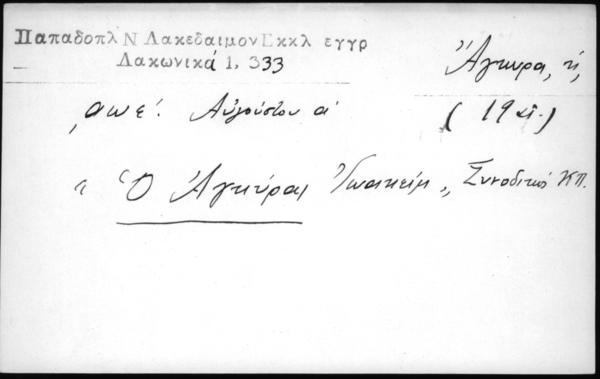 Παπαδοπλ Ν Λακεδαιμον Εκκλ εγγρ
Λακωνικά 1, 333
Ἄγκυρα, ἡ,
͵αωε΄. Αὐγούστου α΄
( 19 αἰ.)
"Ὁ Ἀγκύρας Ἰωακείμ„ Συνοδικό ΚΠ.